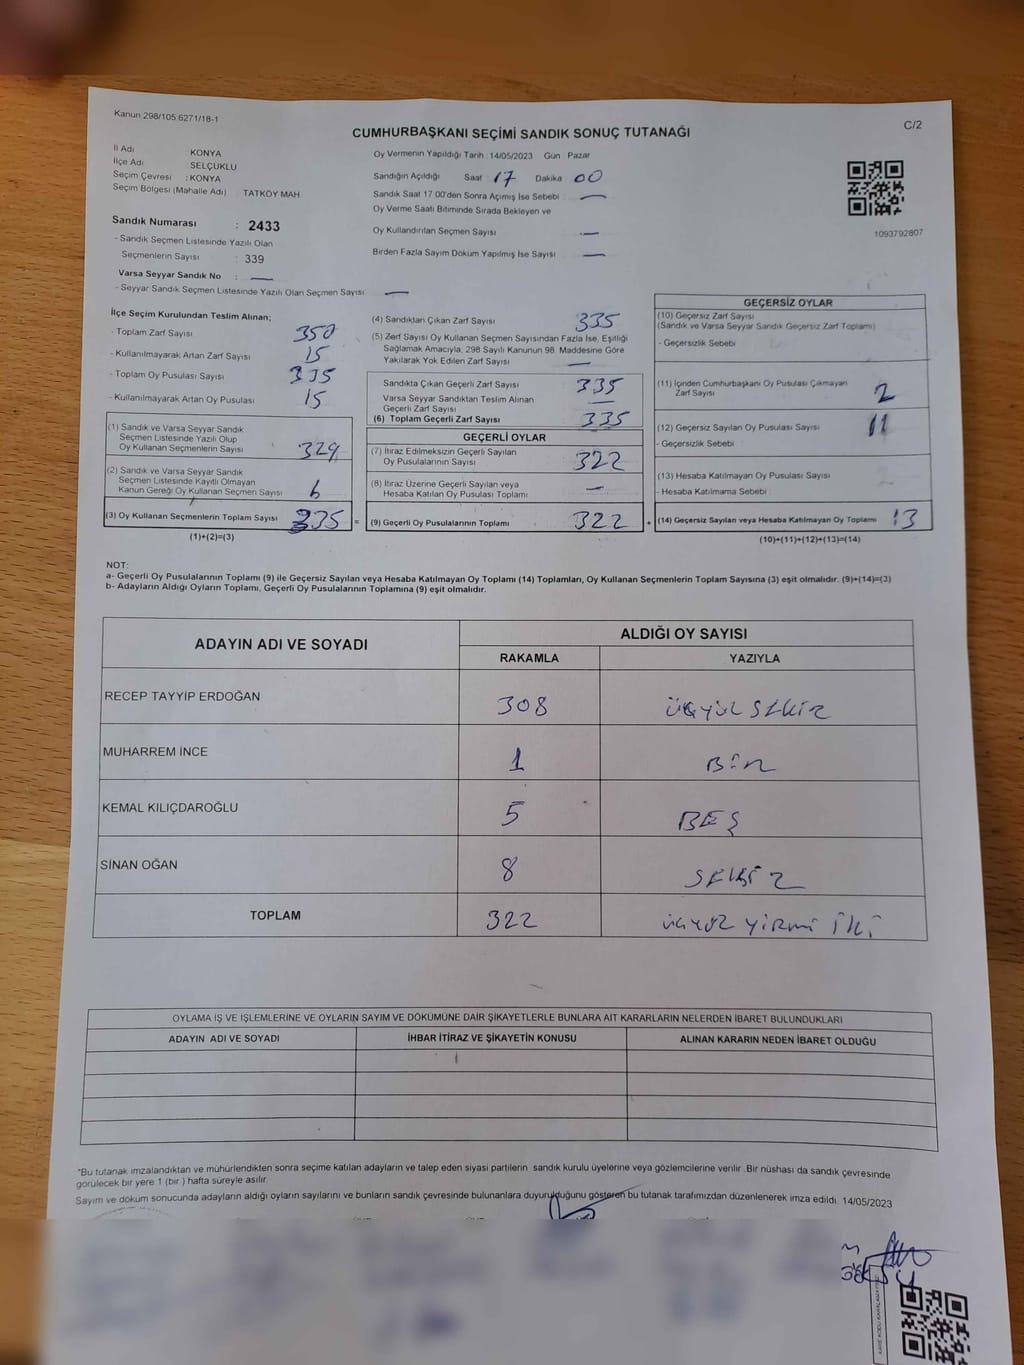 Kanun 298/105 6271/18-1
CUMHURBAŞKANI SEÇİMİ SANDIK SONUÇ TUTANAĞI
C/2
İl Adı KONYA
İlçe Adı SELÇUKLU
Seçim Çevresi : KONYA
Seçim Bölgesi (Mahalle Adı) TATKÖY MAH.
Sandık Numarası : 2433
- Sandık Seçmen Listesinde Yazılı Olan
Seçmenlerin Sayısı : 339
Varsa Seyyar Sandık No : —
- Seyyar Sandık Seçmen Listesinde Yazılı Olan Seçmen Sayısı —
Oy Vermenin Yapıldığı Tarih : 14/05/2023 Gün : Pazar
Sandığın Açıldığı Saat : 17 Dakika : 00
Sandık Saat 17 00'den Sonra Açılmış İse Sebebi : —
Oy Verme Saati Bitiminde Sırada Bekleyen ve
Oy Kullandırılan Seçmen Sayısı : —
Birden Fazla Sayım Döküm Yapılmış İse Sayısı : —
1093792807
İlçe Seçim Kurulundan Teslim Alınan;
- Toplam Zarf Sayısı 350
- Kullanılmayarak Artan Zarf Sayısı 15
- Toplam Oy Pusulası Sayısı 335
- Kullanılmayarak Artan Oy Pusulası 15
(1) Sandık ve Varsa Seyyar Sandık
Seçmen Listesinde Yazılı Olup
Oy Kullanan Seçmenlerin Sayısı 329
(2) Sandık ve Varsa Seyyar Sandık
Seçmen Listesinde Kayıtlı Olmayan
Kanun Gereği Oy Kullanan Seçmen Sayısı 6
(3) Oy Kullanan Seçmenlerin Toplam Sayısı 335 =
(1)+(2)=(3)
(4) Sandıktan Çıkan Zarf Sayısı 335
(5) Zarf Sayısı Oy Kullanan Seçmen Sayısından Fazla İse, Eşitliği
Sağlamak Amacıyla, 298 Sayılı Kanunun 98. Maddesine Göre
Yakılarak Yok Edilen Zarf Sayısı —
Sandıkta Çıkan Geçerli Zarf Sayısı 335
Varsa Seyyar Sandıktan Teslim Alınan
Geçerli Zarf Sayısı —
(6) Toplam Geçerli Zarf Sayısı 335
GEÇERLİ OYLAR
(7) İtiraz Edilmeksizin Geçerli Sayılan
Oy Pusulalarının Sayısı 322
(8) İtiraz Üzerine Geçerli Sayılan veya
Hesaba Katılan Oy Pusulası Toplamı —
(9) Geçerli Oy Pusulalarının Toplamı 322 +
GEÇERSİZ OYLAR
(10) Geçersiz Zarf Sayısı
(Sandık ve Varsa Seyyar Sandık Geçersiz Zarf Toplamı)
- Geçersizlik Sebebi
(11) İçinden Cumhurbaşkanı Oy Pusulası Çıkmayan
Zarf Sayısı 2
(12) Geçersiz Sayılan Oy Pusulası Sayısı 11
- Geçersizlik Sebebi
(13) Hesaba Katılmayan Oy Pusulası Sayısı
- Hesaba Katılmama Sebebi
(14) Geçersiz Sayılan veya Hesaba Katılmayan Oy Toplamı 13
(10)+(11)+(12)+(13)=(14)
NOT:
a- Geçerli Oy Pusulalarının Toplamı (9) ile Geçersiz Sayılan veya Hesaba Katılmayan Oy Toplamı (14) Toplamları, Oy Kullanan Seçmenlerin Toplam Sayısına (3) eşit olmalıdır. (9)+(14)=(3)
b- Adayların Aldığı Oyların Toplamı, Geçerli Oy Pusulalarının Toplamına (9) eşit olmalıdır.
ADAYIN ADI VE SOYADI ALDIĞI OY SAYISI
RAKAMLA YAZIYLA
RECEP TAYYİP ERDOĞAN 308 üçyüz sekiz
MUHARREM İNCE 1 Bir
KEMAL KILIÇDAROĞLU 5 BEŞ
SİNAN OĞAN 8 sekiz
TOPLAM 322 üçyüz yirmi iki
OYLAMA İŞ VE İŞLEMLERİNE VE OYLARIN SAYIM VE DÖKÜMÜNE DAİR ŞİKAYETLERLE BUNLARA AİT KARARLARIN NELERDEN İBARET BULUNDUKLARI
ADAYIN ADI VE SOYADI İHBAR İTİRAZ VE ŞİKAYETİN KONUSU ALINAN KARARIN NEDEN İBARET OLDUĞU
*Bu tutanak imzalandıktan ve mühürlendikten sonra seçime katılan adayların ve talep eden siyasi partilerin sandık kurulu üyelerine veya gözlemcilerine verilir. Bir nüshası da sandık çevresinde
görülecek bir yere 1 (bir ) hafta süreyle asılır.
Sayım ve döküm sonucunda adayların aldığı oyların sayılarını ve bunların sandık çevresinde bulunanlara duyurulduğunu gösteren bu tutanak tarafımızdan düzenlenerek imza edildi. 14/05/2023